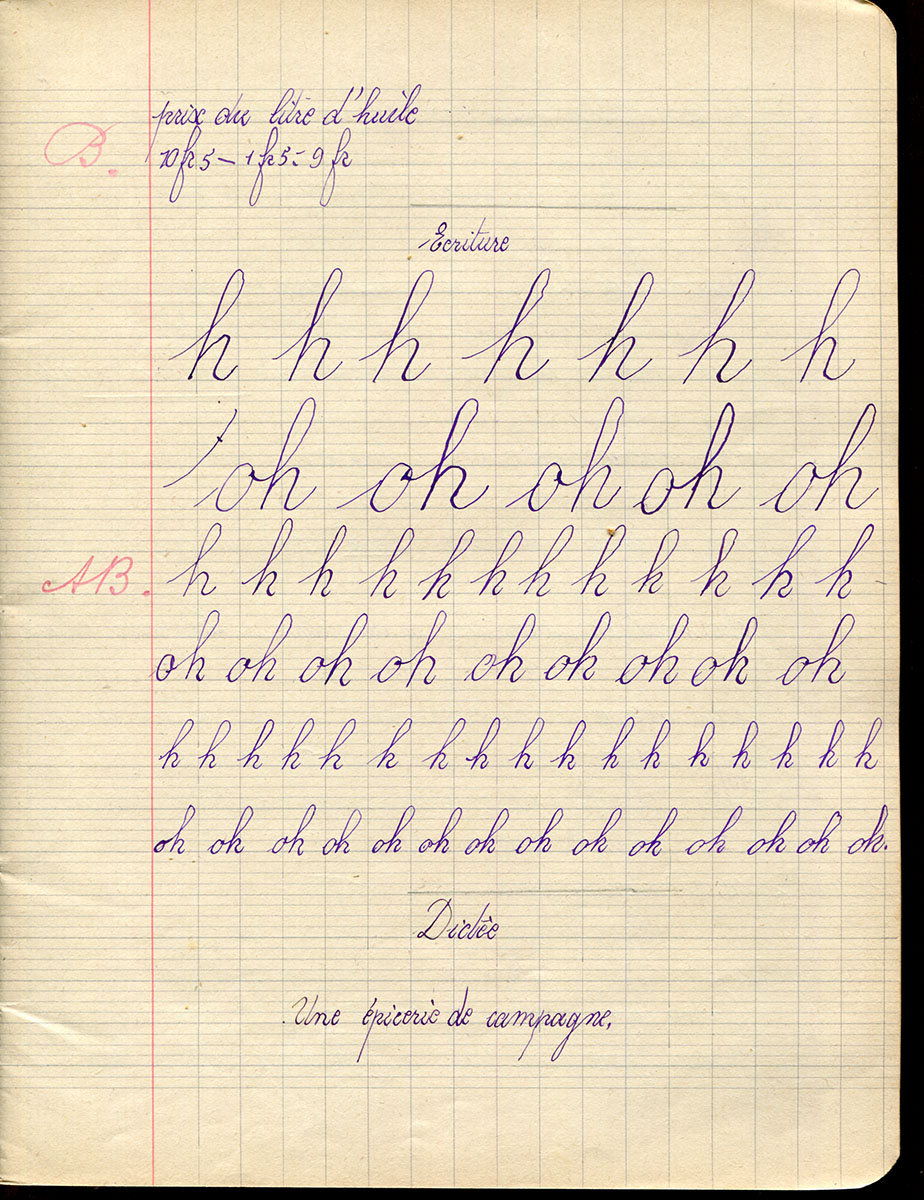 prix du litre d'huile
B.
10fr5 – 1fr5 = 9fr
Ecriture
h h h h h h h
oh oh oh oh oh
AB. h h h h h h h h h h h h
oh oh oh oh oh oh oh oh oh
h h h h h h h h h h h h h h h h h
oh oh oh oh oh oh oh oh oh oh oh oh oh oh.
Dictée
Une épicerie de campagne.